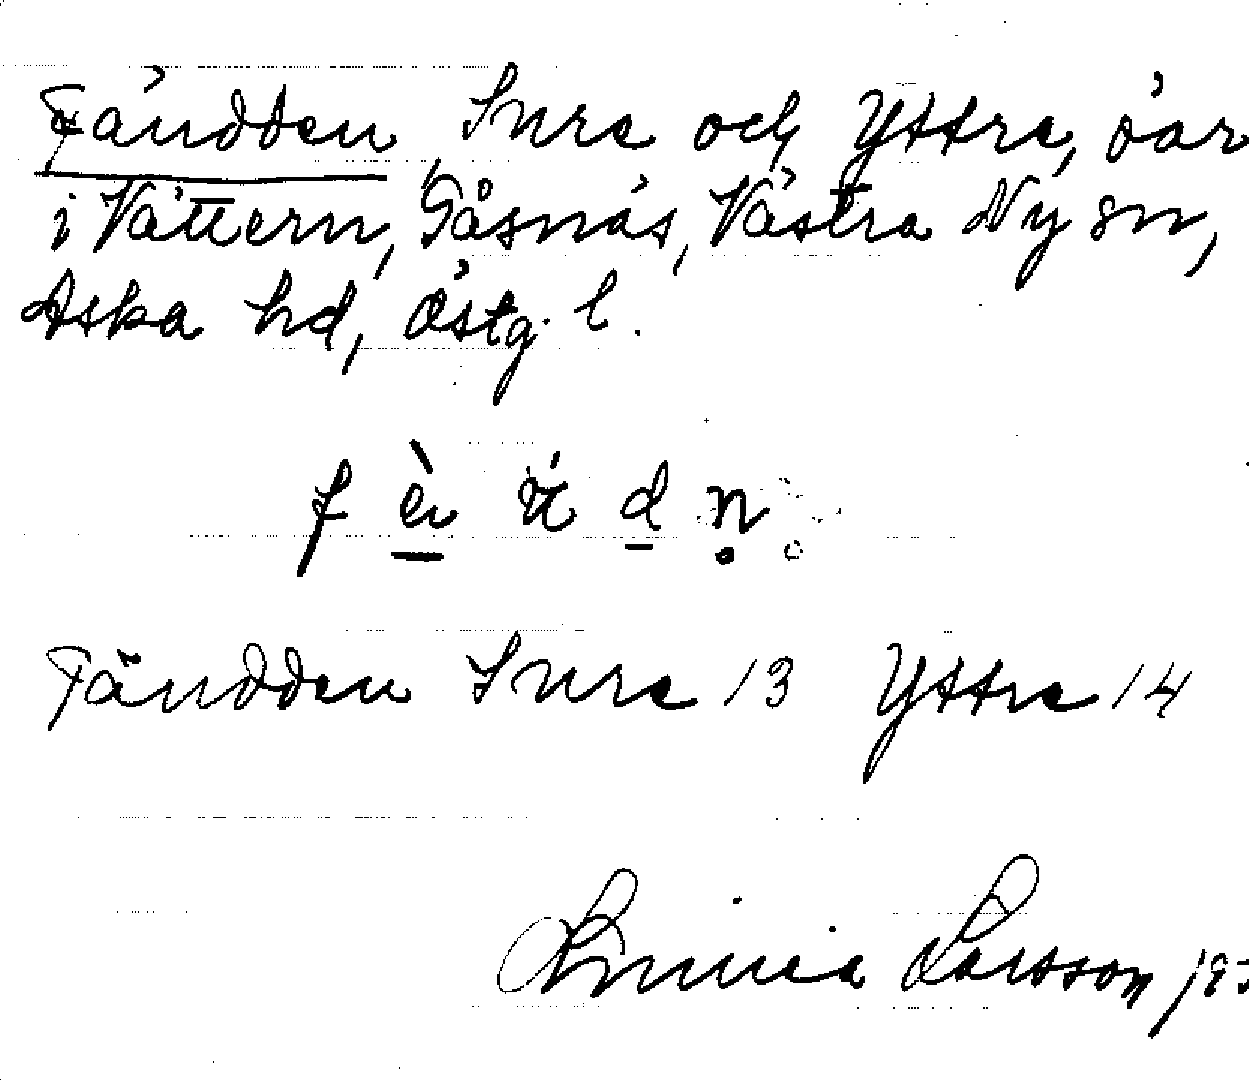 Fäudden, Inre och Yttre, öar
i Vättern, Gåsnäs, Västra Ny sn,
Aska hd, Östg. l.
Fäudden Inre 13 Yttre 14
Larsson